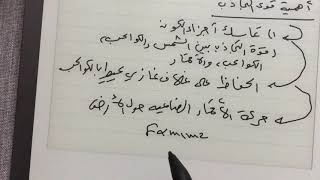 أهمية قوى التجاذب
١) تماسك أجزاء الكون
(قوة التجاذب بين الشمس والكواكب،
الكواكب، والأقمار
الحفاظ على غلاف غازي يحيط بالكواكب
حركة الأقمار الصناعية حول الأرض
F α m1 m2